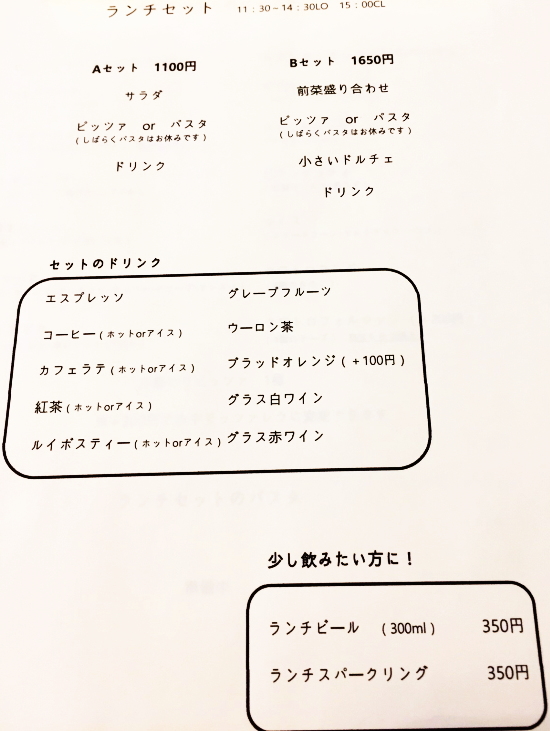 ランチセット 11：30－14：30LO 15：00CL
Aセット 1100円
サラダ
ピッツァ or パスタ
（しばらくパスタはお休みです）
ドリンク
Bセット 1650円
前菜盛り合わせ
ピッツァ or パスタ
（しばらくパスタはお休みです）
小さいドルチェ
ドリンク
セットのドリンク
エスプレッソ
コーヒー（ホットorアイス）
カフェラテ（ホットorアイス）
紅茶（ホットorアイス）
ルイボスティー（ホットorアイス）
グレープフルーツ
ウーロン茶
ブラッドオレンジ（＋100円）
グラス白ワイン
グラス赤ワイン
少し飲みたい方に！
ランチビール （300ml） 350円
ランチスパークリング 350円